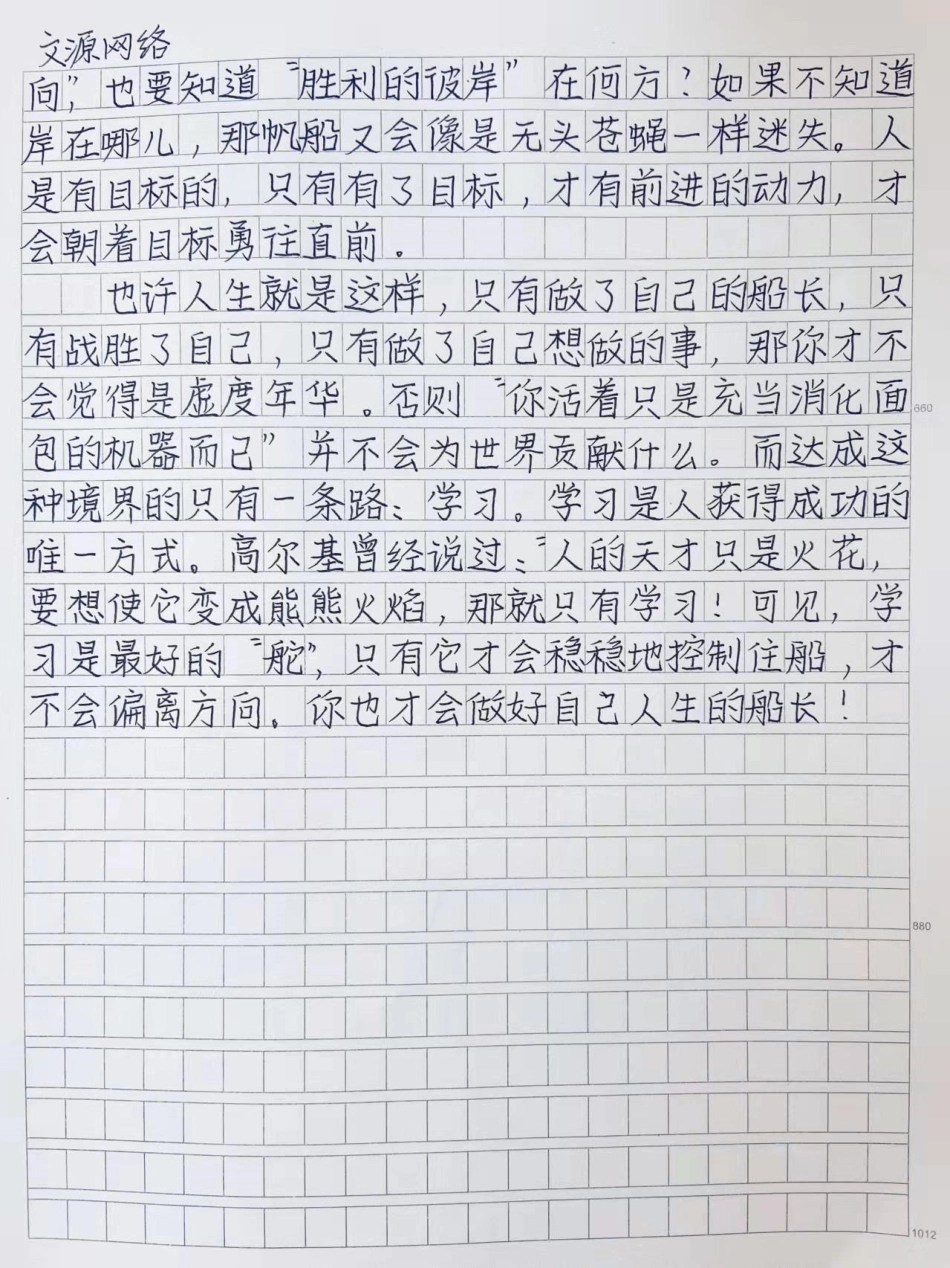 文源网络
向”，也要知道“胜利的彼岸”在何方？如果不知道
岸在哪儿，那帆船又会像是无头苍蝇一样迷失。人
是有目标的，只有有了目标，才有前进的动力，才
会朝着目标勇往直前。
也许人生就是这样，只有做了自己的船长，只
有战胜了自己，只有做了自己想做的事，那你才不
会觉得是虚度年华。否则“你活着只是充当消化面
660
包的机器而已”并不会为世界贡献什么。而达成这
种境界的只有一条路：学习。学习是人获得成功的
唯一方式。高尔基曾经说过：“人的天才只是火花，
要想使它变成熊熊火焰，那就只有学习！可见，学
习是最好的“舵”，只有它才会稳稳地控制住船，才
不会偏离方向。你也才会做好自己人生的船长！
880
1012